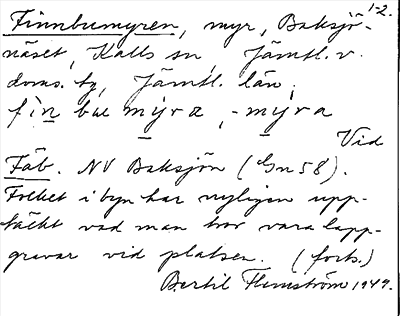 1-2.
Finnbumyren, myr, Baksjö-
näset, Kalls sn, Jämtl. v.
doms. tg, Jämtl. län.
fìn bu mỳra, -mỳra
Vid
Fäb. NV Baksjön (Gn 58).
Folket i byn har nyligen upp-
täckt vad man tror vara lapp-
gravar vid platsen. (forts.)
Bertil Flemström 1949.